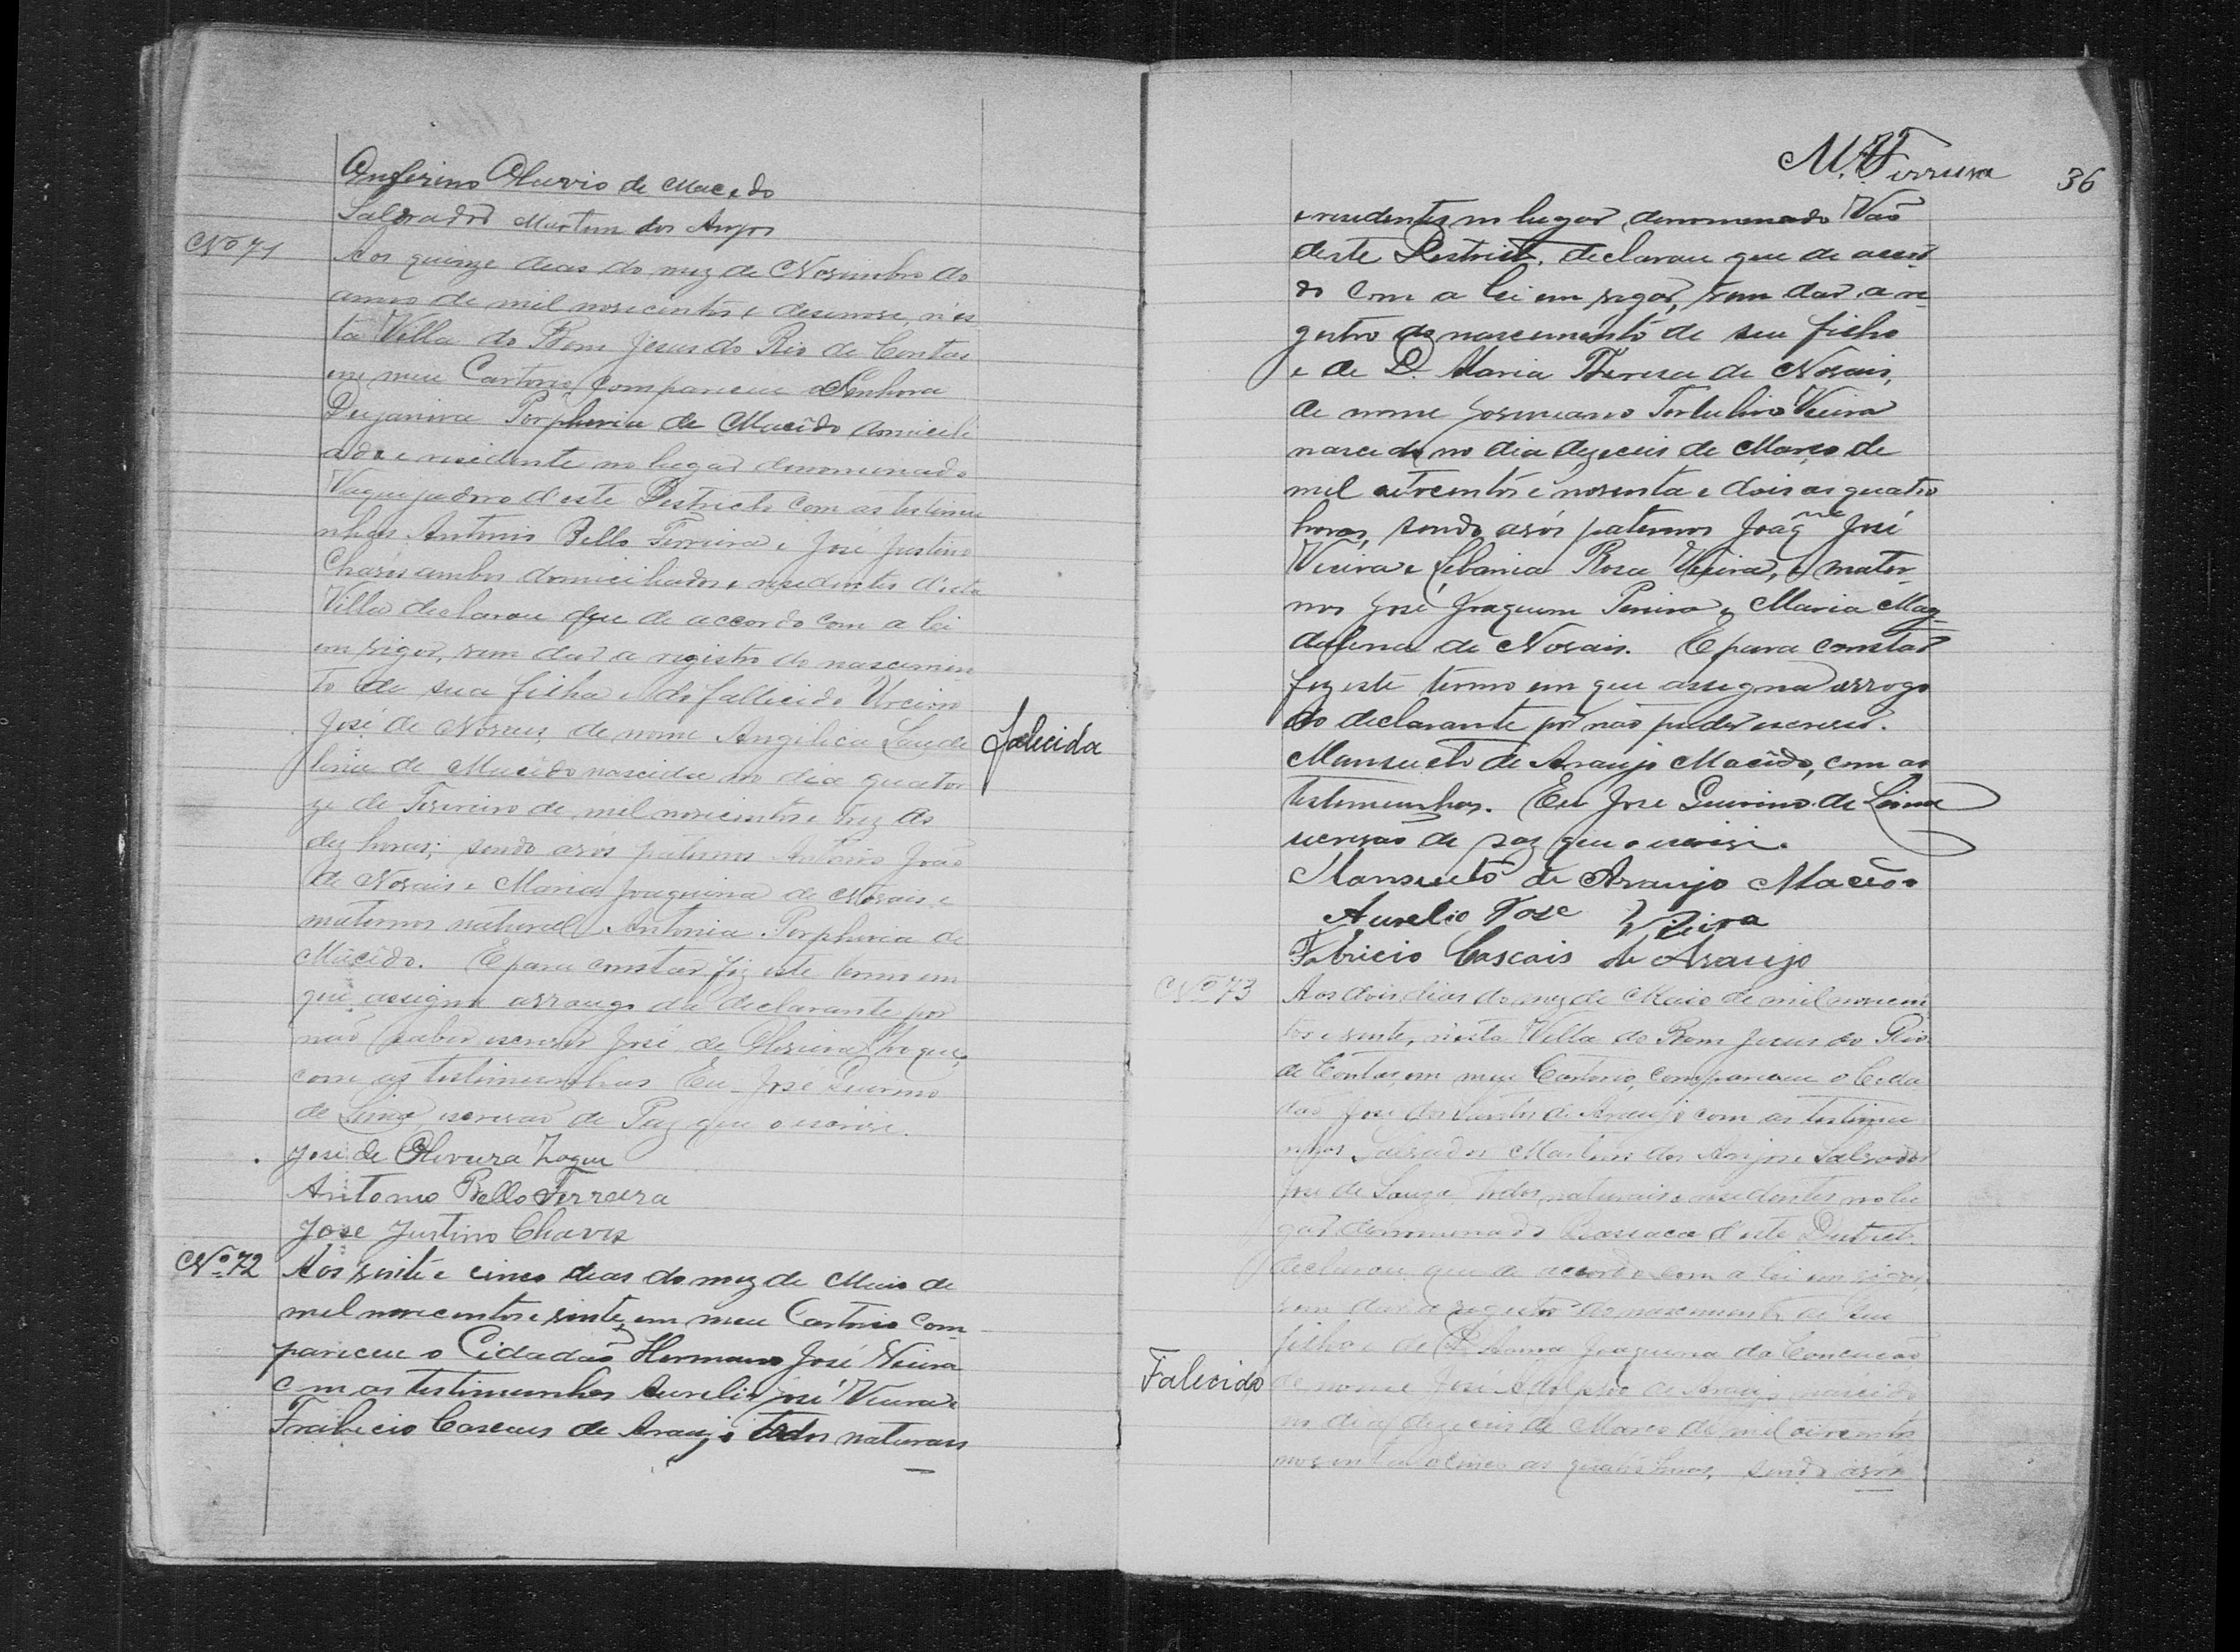 Olivio de Macedo
Salvador Martins dos Anjos
Nº 71
Aos quinze dias do mez de Novembro do
anno de mil novicentos e desenove, n'es
ta Villa do Bom Jesus do Rio de Contas
em meu Cartorio, compareceu a Senhora
Dejanira Porphiria de Macêdo domicili
ada e residente no lugar denominado
Vaquejadoro d'este Destricto com as testimu
nhas Antonio Bello Ferreira e José Justino
Chaves ambos domiciliados e residentes d'esta
Villa declarou que de accordo com a lei
em vigor, vem dar a registro do nascimen
to de sua filha e do fallicido Urcino
José de Novais, de nome Angilica Laude
falecida
lina de Macêdo nascida no dia quator
ze de Fevereiro de mil novicentos e trez as
dez horas; sendo avós paternos Antonio João
de Novais e Maria Joaquina de Novais e
maternos natural Antonia Porphiria de
Macêdo. E para constar fiz este termo em
que assigna arrougo da declarante por
não saber escrever José de Oliveira
com as testimunhas Eu José Guirino
de Lima, escrivão de Paz que o escrivi.
José de Oliveira
Antonio Bello Ferreira
Jose Justino Chaves
Nº 72
Aos vinte e cinco dias do mez de Maio de
mil novicentos e vinte, em meu Cartorio com
pariceu o Cidadão Hermano José Vieira
com as testimunhas Aurelio José Vieira e
Frabicio Cascais de Araujo todos naturais
M. Ferreira
36
e residentes no lugar denominado Vão
deste Destricto, declarou que de accor
do com a lei em vigor, vem dar a re
gistro do nascimento de seu filho
e de D. Maria Thereza de Novais,
de nome Tortulino Vieira
nascido no dia dezeceis de Março de
mil oitocentos e noventa e dois as quatro
horas, sendo avós paternos Joaqm José
Vieira e Libania Rosa Vieira, e mater
nos José Joaquim Pereira e Maria Mag
dalena de Novais. E para constar
fiz este termo em que assigna arrogo
do declarante por não puder escrever.
Mansueto de Araujo Macêdo, com as
testimunhas. Eu Jose Guirino de Lima
escrivão de paz que o escrivi.
Mansueto de Araujo Macêdo
Aurelio Jose Vieira
Fabricio Cascais de Araujo
Nº 73
Aos dois dias do mez de Maio de mil novicen
tos e vinte, nesta Villa do Bom Jesus do Rio
de Contas, em meu Cartorio, compareceu o Cida
dão José dos Santos de Araujo com as testimu
nhas Salvador Martins dos Anjos e Salvador
José de Souza todos naturais e residentes no lu
gar denominado d'este Destricto
declarou que de accordo com a lei em vigor,
vem dar a registro do nascimento de seu
filho e de D. Anna Joaquina da Conceição
Falecido
de nome José Adolpho de Araujo nascido
no dia dezeceis de Março de mil oitocentos
noventa e cinco as quatro horas, sendo avós